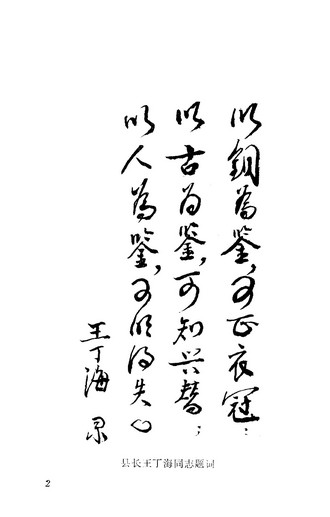 以铜为鉴，可正衣冠；
以古为鉴，可知兴替；
以人为鉴，可明得失。
王丁海 录
县长王丁海同志题词
2